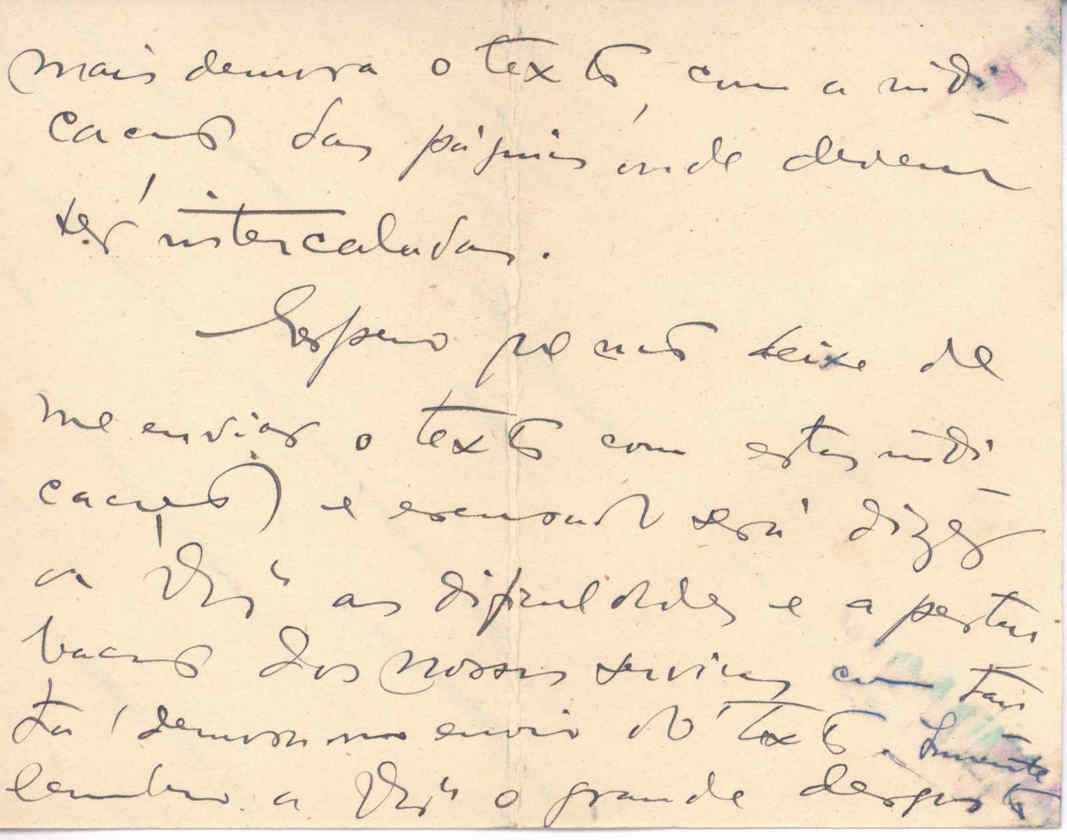 mais demora o texto, com a indi-
cação das páginas onde devem
ser intercaladas.
Espero que não deixe de
me enviar o texto com estas indi-
cações, e escusado será dizer
a V. Exª as dificuldades e a pertur-
bação dos nossos serviços com tais
demora no envio do texto. Somente
lembro a V. Exª o grande desgosto